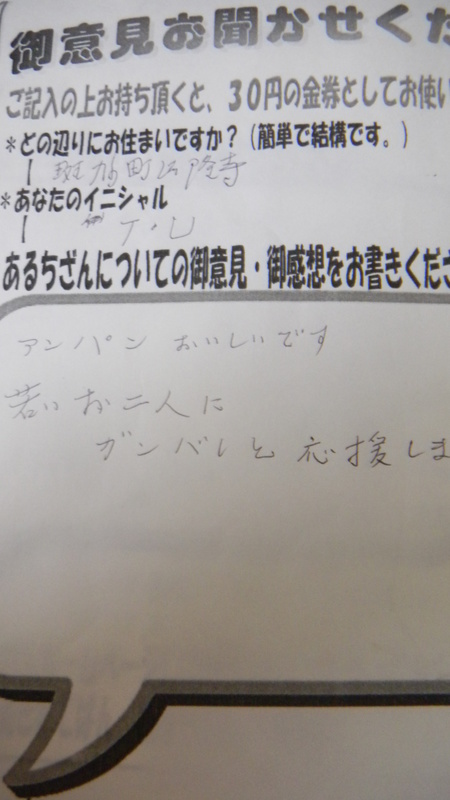 御意見お聞かせくだ
ご記入の上お持ち頂くと、30円の金券としてお使い
*どの辺りにお住まいですか？(簡単で結構です。)
斑鳩町法隆寺
*あなたのイニシャル
T・U
あるちざんについての御意見・御感想をお書きくださ
アンパン おいしいです
若いお二人に
ガンバレと応援しま